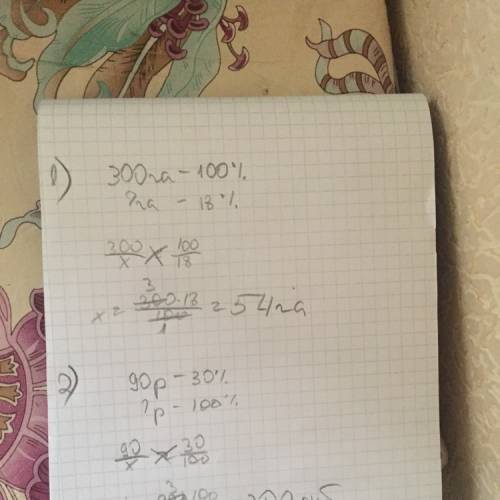 1) 300га - 100%
?га - 18%
300/x × 100/18
x = 300·18/100 = 54га
3
1
2) 90р - 30%
?р - 100%
90/x × 30/100
3